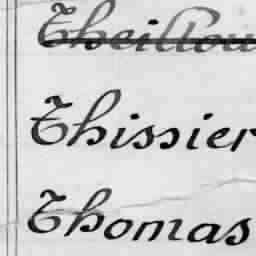 Theillou
Thissier
Thomas